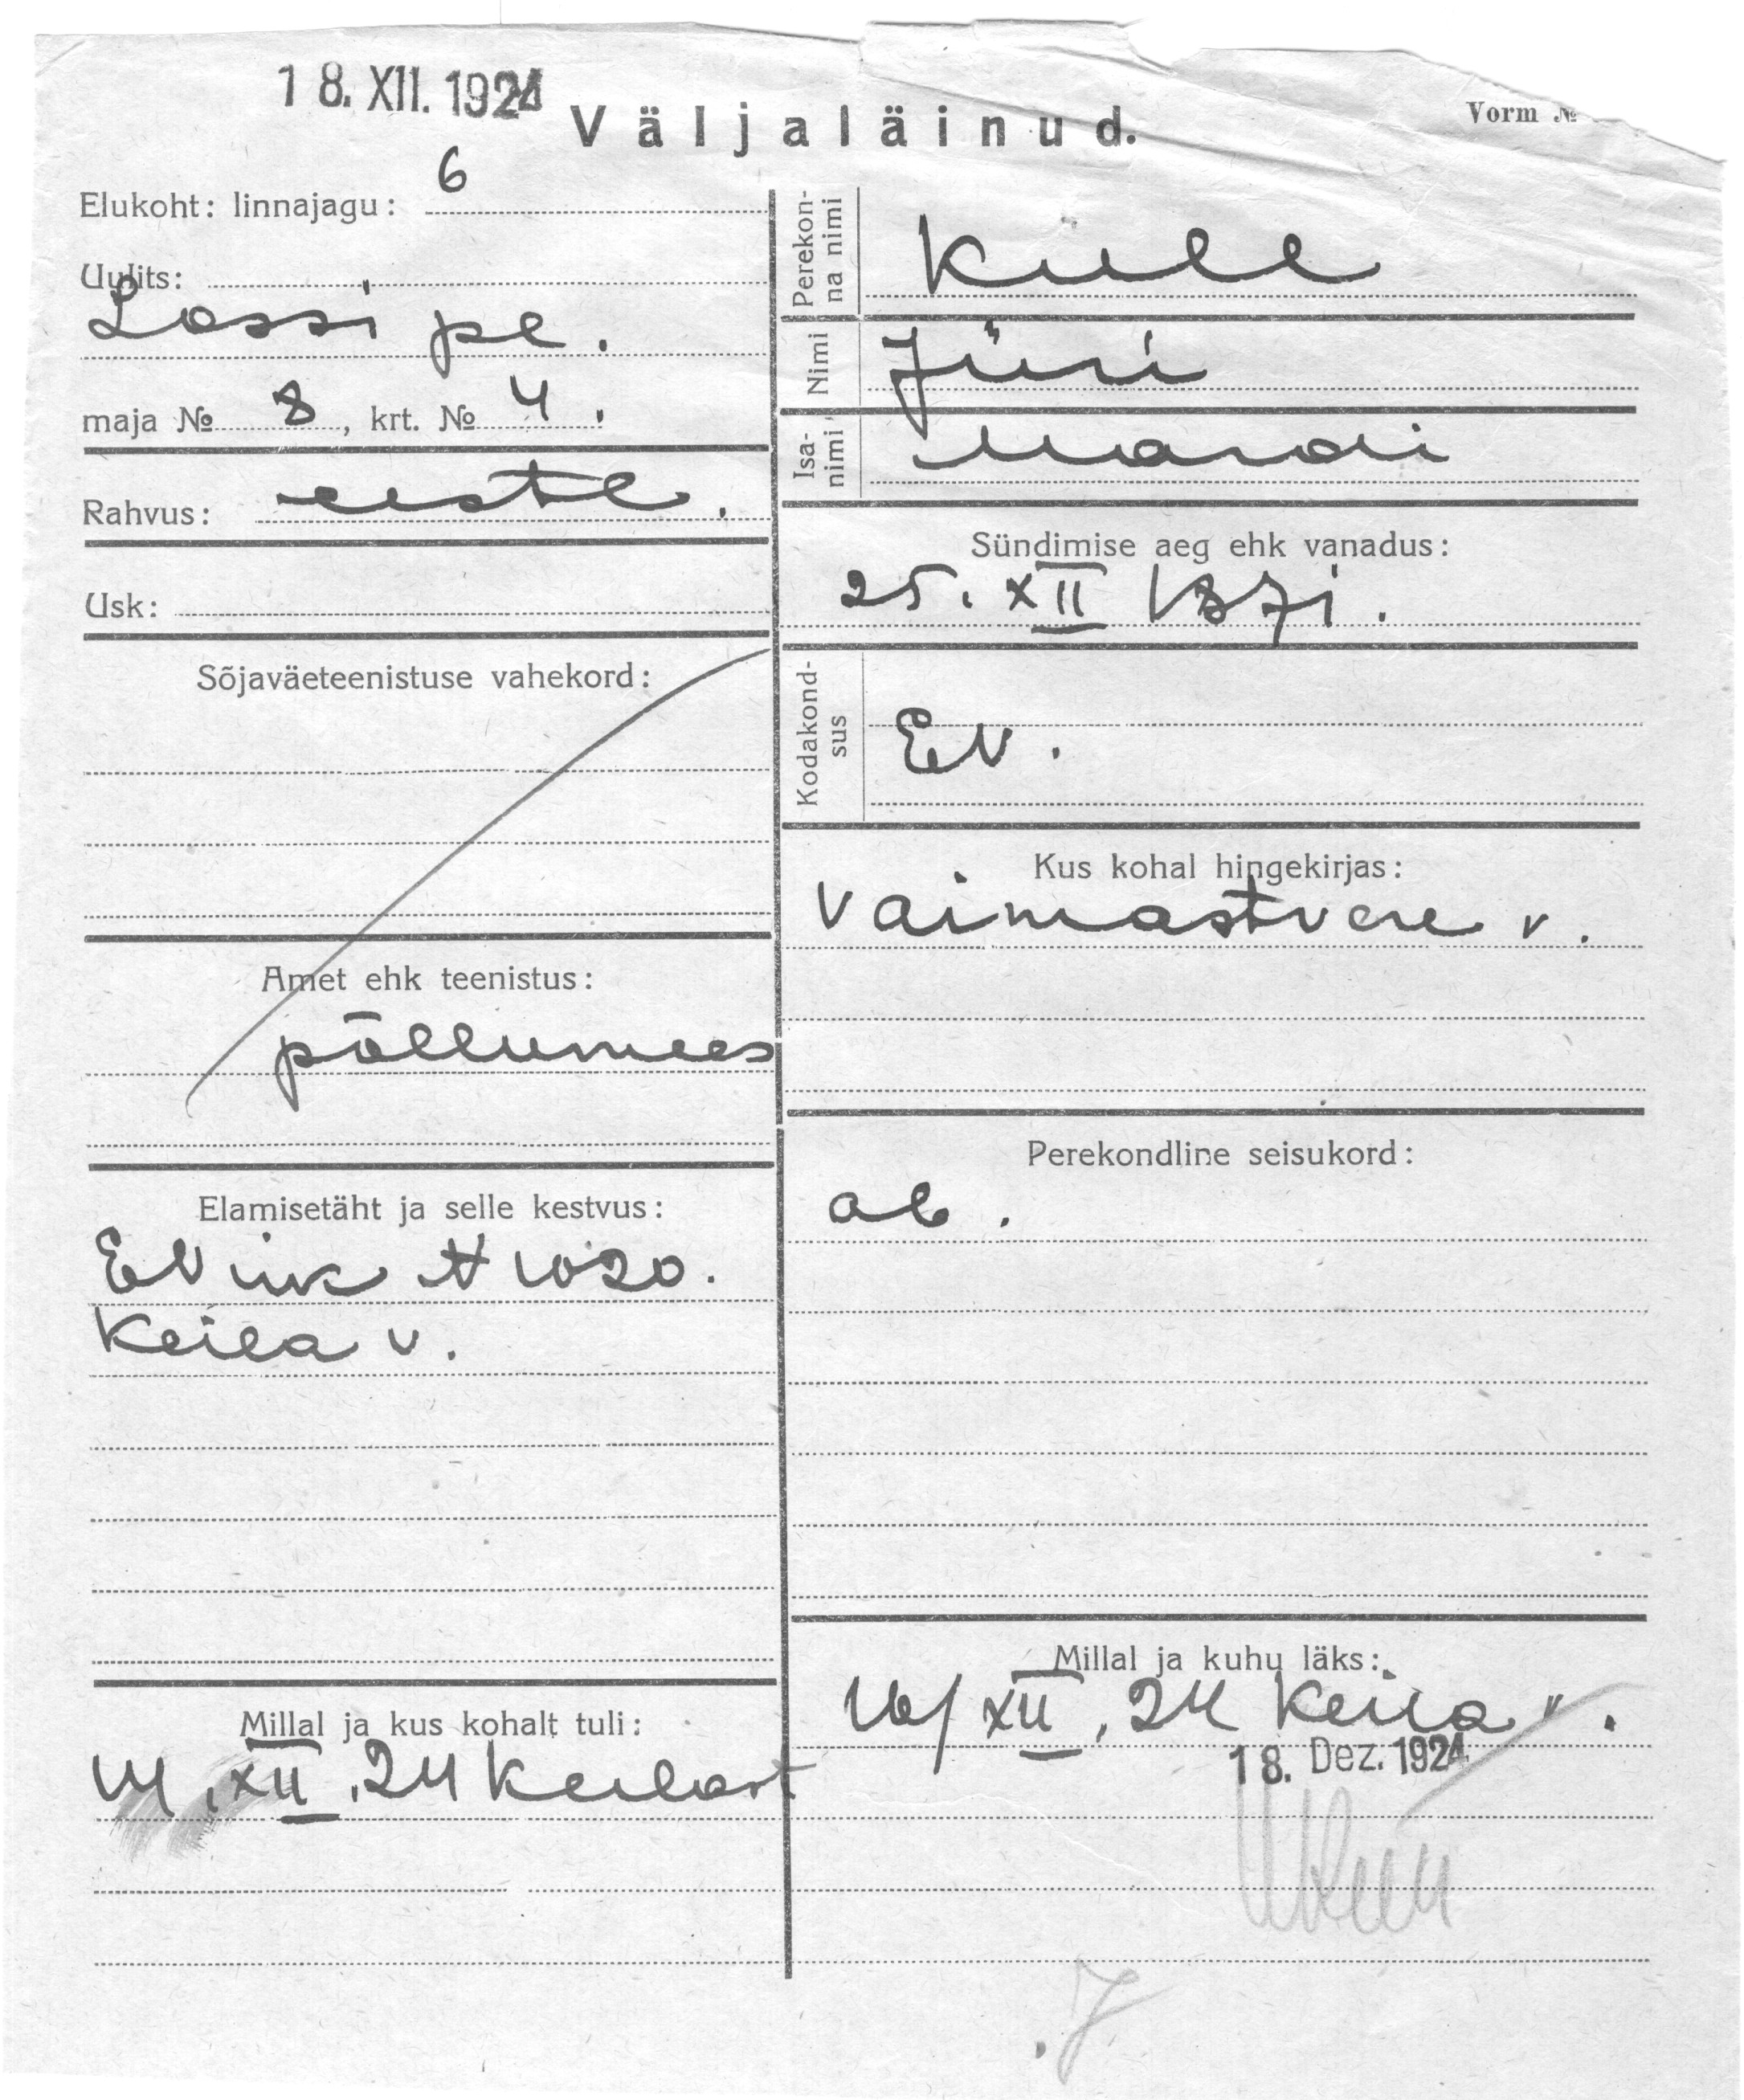 18. XII. 1924
Väljaläinud.
Vorm №
Elukoht: linnajagu: 6
Uulits:
Lossi pl.
maja № 8, krt. № 4.
Rahvus: eestl.
Usk:
Sõjaväeteenistuse vahekord:
Amet ehk teenistus:
põllumees
Elamisetäht ja selle kestvus:
EV iik N 1020.
Keila v.
Millal ja kus kohalt tuli:
14. XII. 24 Keilast
Perekonna nimi
Kull
Nimi
Jüri
Isanimi
Mardi
Sündimise aeg ehk vanadus:
25. XII 1871.
Kodakondsus
EV.
Kus kohal hingekirjas:
Vaimastvere v.
Perekondline seisukord:
ab.
Millal ja kuhu läks:
16/XII. 24 Keila v.
18. Dez. 1924